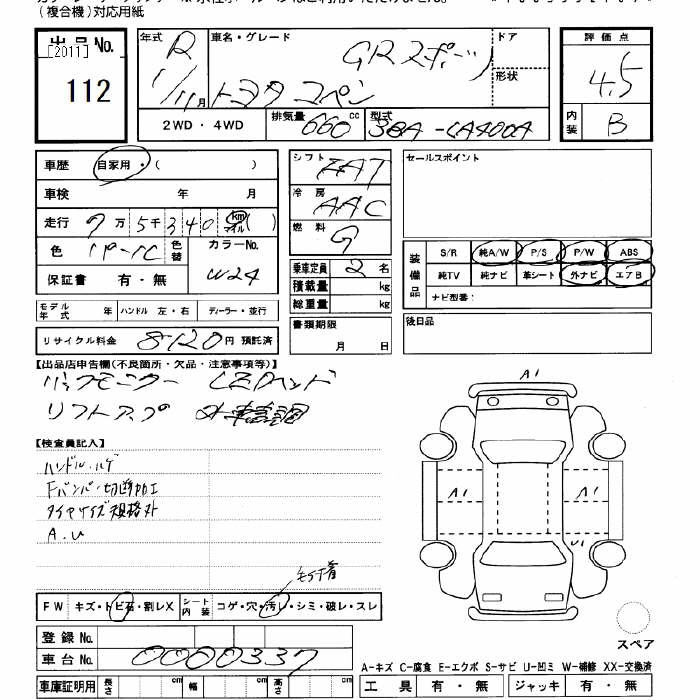 (複合機)対応用紙
出品No. 年式 R 車名・グレード GRスポーツ ドア 評価点
[2011] 1/11月 トヨタ コペン 形状 4.5
112 2WD・4WD 排気量 660 cc 型式 3BA-LA400A 内装 B
車歴 自家用・( ) シフト FAT セールスポイント
車検 年 月 冷房 AAC
走行 7万5千340 km マイル ( ) 燃料 G
色 パール 色替 カラーNo. W24 装備品 S/R 純A/W P/S P/W ABS
保証書 有・無 乗車定員 2名 純TV 純ナビ 革シート 外ナビ エアB
積載量 kg ナビ型番:
総重量 kg
モデル年式 年 ハンドル 左・右 ディーラー・並行 書類期限 年 月 日 後日品
リサイクル料金 8120円 預託済
【出品店申告欄(不良箇所・欠品・注意事項等)】
バックモニター LEDヘッド
リフトアップ 外車高調
A1
【検査員記入】
ハンドル・ハゲ
Fバンパー切断加工
タイヤサイズ規格外
A.U
A1 A1
U1
モケ汚
FW キズ・トビ石・割レX シート内装 コゲ・穴・汚レ・シミ・破レ・スレ
スペア
登録No.
車台No. 0000337
A-キズ C-腐食 E-エクボ S-サビ U-凹ミ W-補修 XX-交換済
車庫証明用 長さ cm 幅 cm 高さ cm 工具 有・無 ジャッキ 有・無